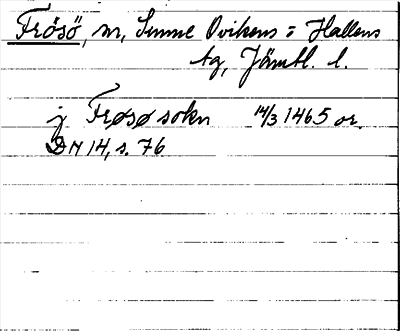 Frösö, m, Sunne Ovikens o Hallens
tg, Jämtl. l.
j Frøsø sokn 14/3 1465 or.
DN 14, s. 76